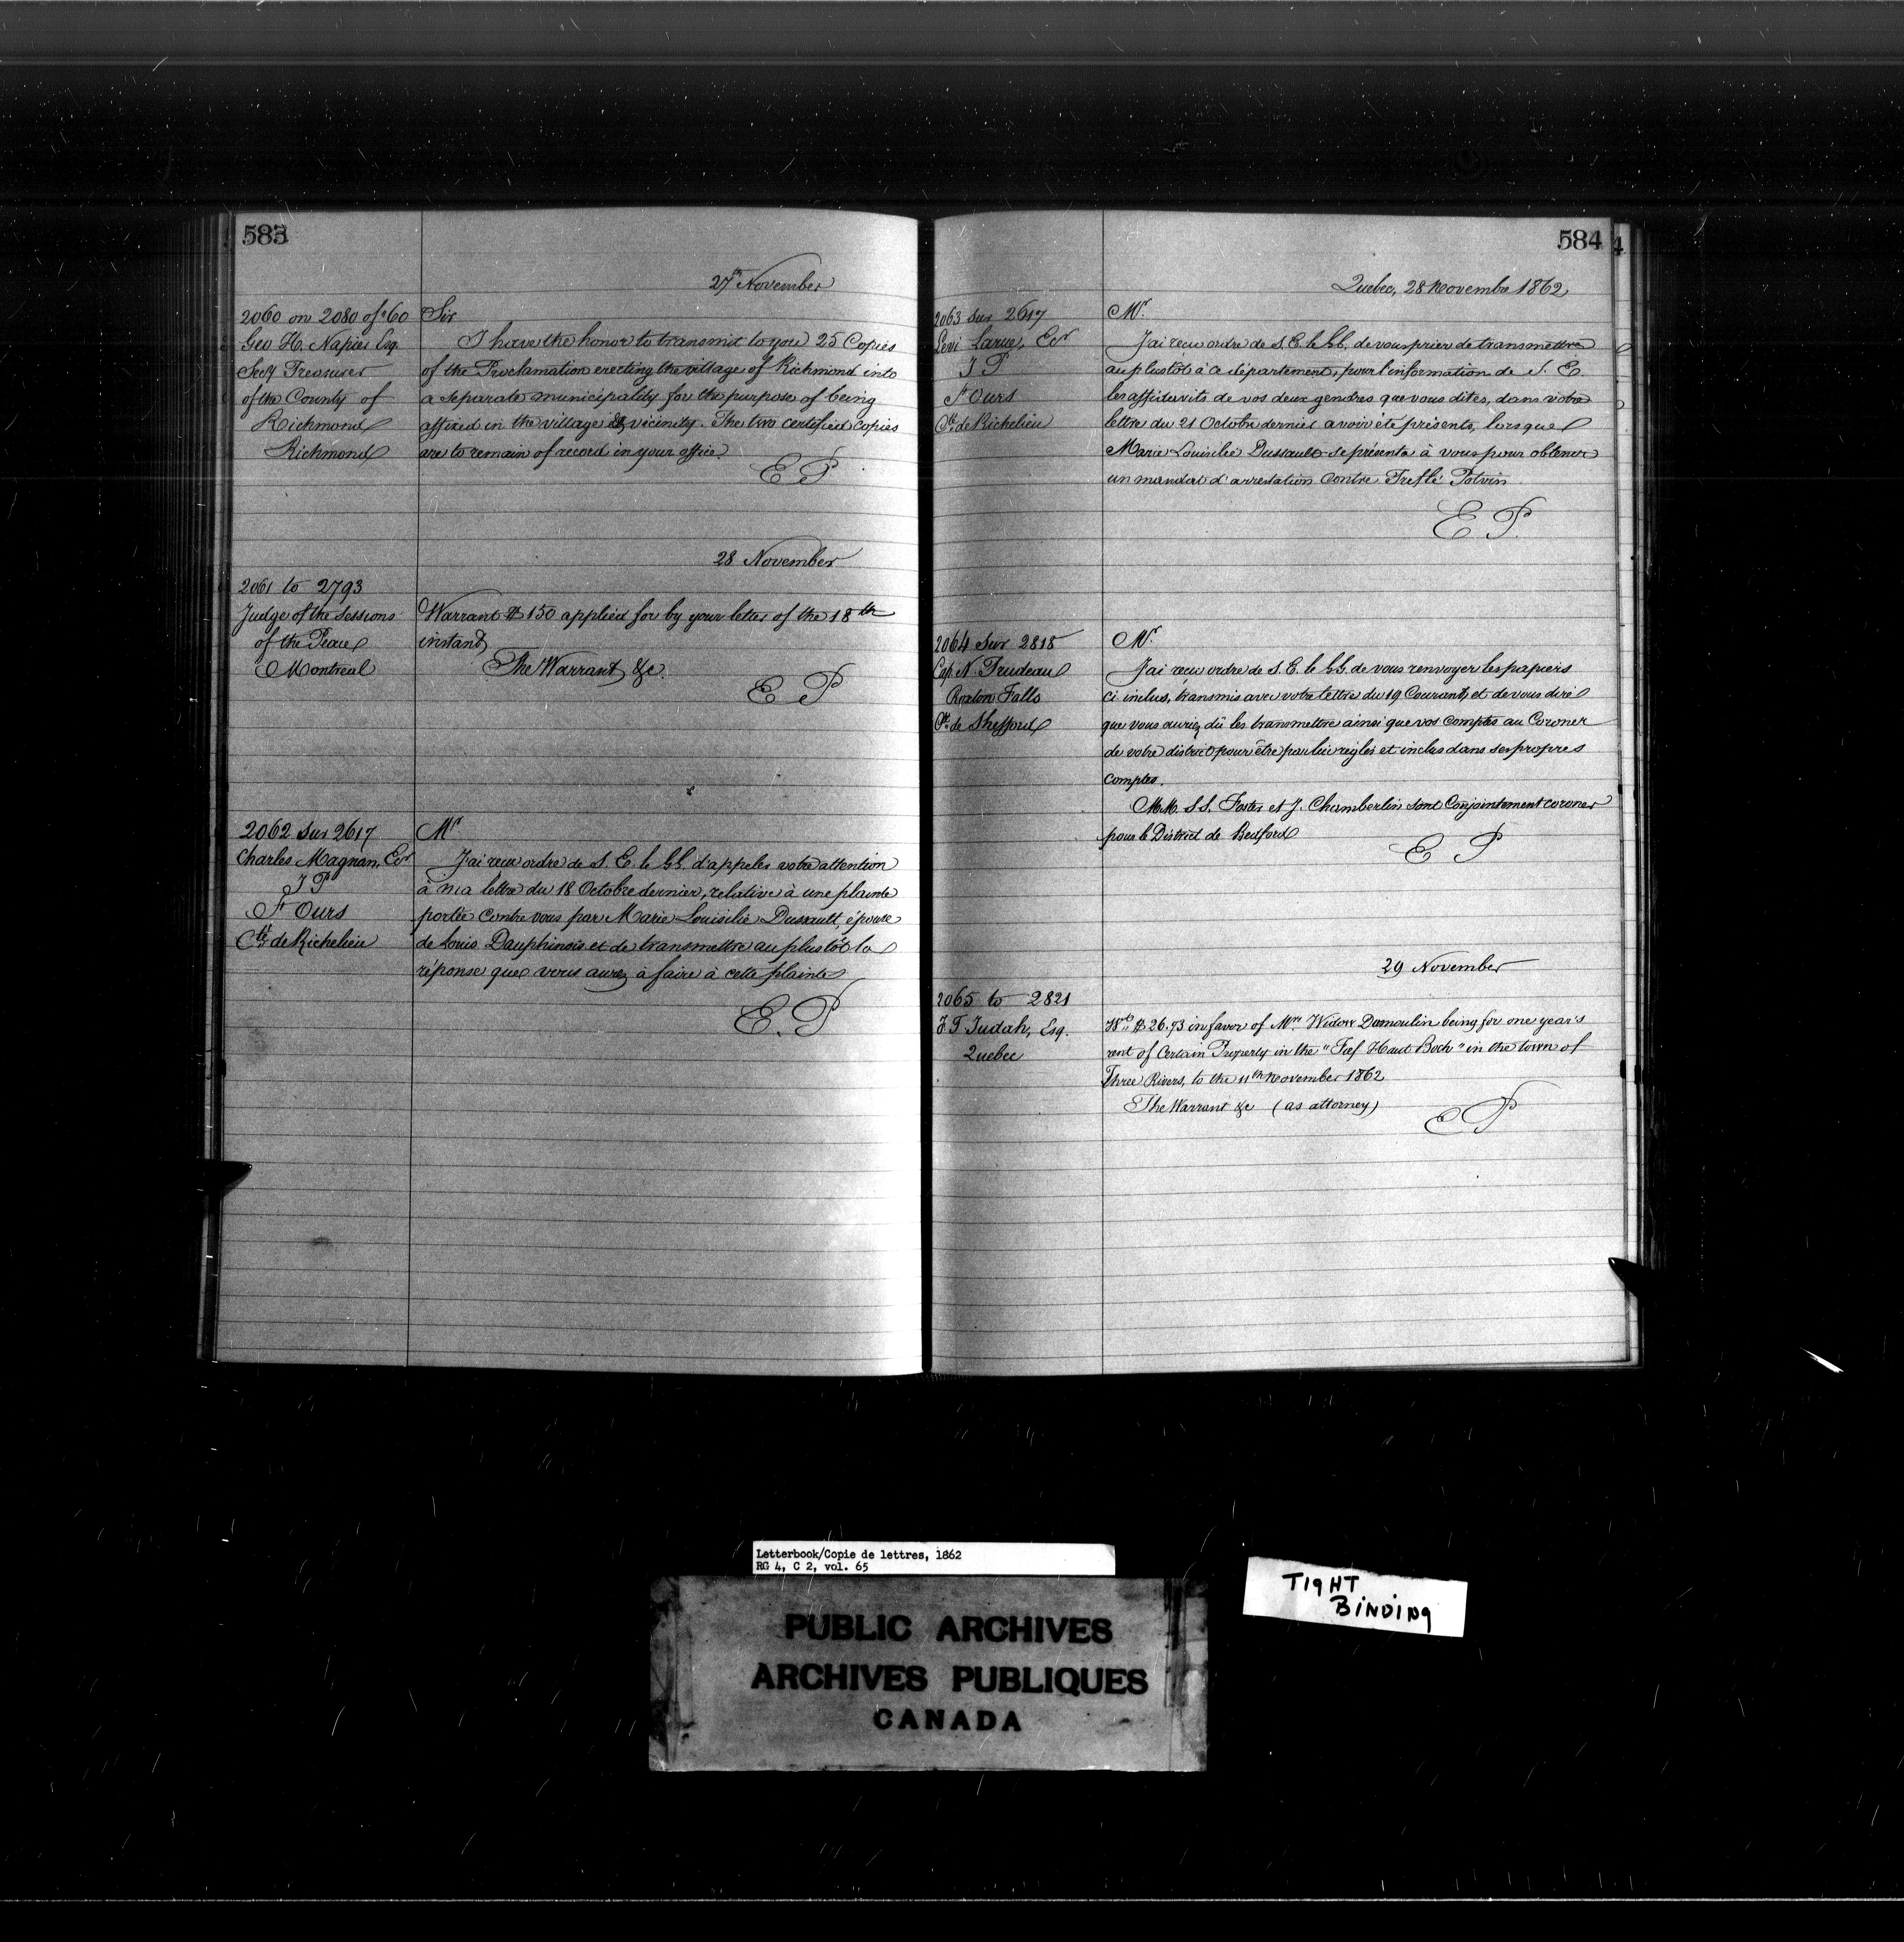 583
27th November
2060 on 2080 of '60
Geo H. Napier Esq.
Secy Treasurer
of the County of
Richmond
Richmond
Sir
I have the honor to transmit to you 25 Copies
of the Proclamation erecting the village of Richmond into
a separate municipality for the purpose of being
affixed in the village & vicinity. The two certified copies
are to remain of record in your office.
E P
28 November
2061 to 2793
Judge of the Sessions
of the Peace
Montreal
Warrant $150 applied for by your letter of the 18th
instant
The Warrant &c.
E P
2062 sur 2617
Charles Magnan, Ecr
J P
St Ours
Cté de Richelieu
Mr
J'ai reçu ordre de S. E. le G.G. d'appeler votre attention
à ma lettre du 18 Octobre dernier, relative à une plainte
portée contre vous par Marie Louisilie Dussault, épouse
de Louis Dauphinois et de transmettre au plustôt la
réponse que vous aurez à faire à cette plainte
E. P
584
Quebec, 28 Novembre 1862
2063 sur 2617
Levi Larue, Ecr
J P
St Ours
Cté de Richelieu
Mr.
J'ai reçu ordre de S. E. le G.G. de vous prier de transmettre
au plustôt à ce département, pour l'information de S. E.
les affidavits de vos deux gendres que vous dites, dans votre
lettre du 21 Octobre dernier avoir été présents, lorsque
Marie Louisilie Dussault se présenta à vous pour obtenir
un mandat d'arrestation contre Trefflé Potvin.
E P.
2064 sur 2818
Cap. N. Trudeau
Roxton Falls
Cté de Shefford
Mr.
J'ai reçu ordre de S. E. le G.G. de vous renvoyer les papiers
ci inclus, transmis avec votre lettre du 19 Courant, et de vous dire
que vous auriez dû les transmettre ainsi que vos comptes au Coroner
de votre district pour être par lui réglés et inclus dans ses propres
comptes.
MM. S.S. Foster et J. Chamberlin sont Conjointement coroner
pour le District de Bedford
E P
29 November
2065 to 2821
F. T. Judah, Esq.
Quebec
$26.73 in favor of Mrs. Widow Dumoulin being for one year's
rent of Certain Property in the "Fief Haut Boch" in the town of
Three Rivers, to the 11th November 1862
The Warrant &c (as attorney)
E P
Letterbook/Copie de lettres, 1862
RG 4, C 2, vol. 65
TIGHT
BINDING
PUBLIC ARCHIVES
ARCHIVES PUBLIQUES
CANADA